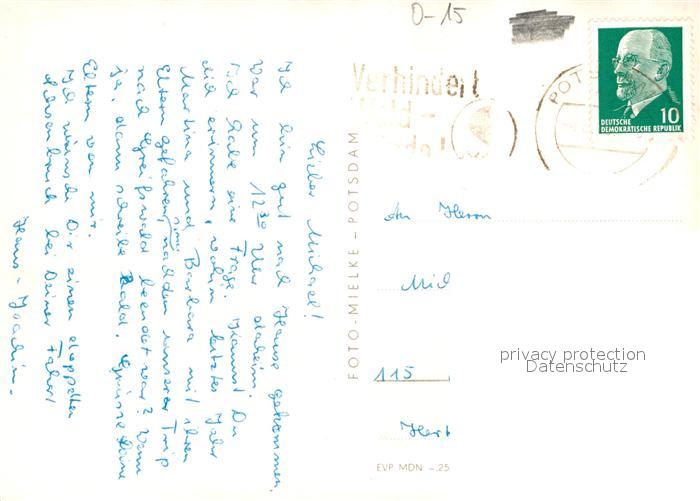 Lieber Michael!
Ich bin gut nach Hause gekommen.
War um 12³⁰ Uhr daheim.
Ich habe eine Frage. Kannst Du
dich erinnern, wohin letztes Jahr
Martina und Barbara mit ihren
Eltern gefahren sind, nachdem unserer Trip
nach Greifswald beendet war? Wenn
ja, dann schreibe bald. Grüsse Deine
Eltern von mir.
Ich wünsche Dir einen doppelten
Achsenbruch bei Deiner Fahrt
Hans-Joachim.
0-15
Verhindert
Wild-
POTS
10
DEUTSCHE
DEMOKRATISCHE REPUBLIK
FOTO-MIELKE – POTSDAM
An Herrn
Mich
115
Hert
EVP MDN –.25
privacy protection
Datenschutz